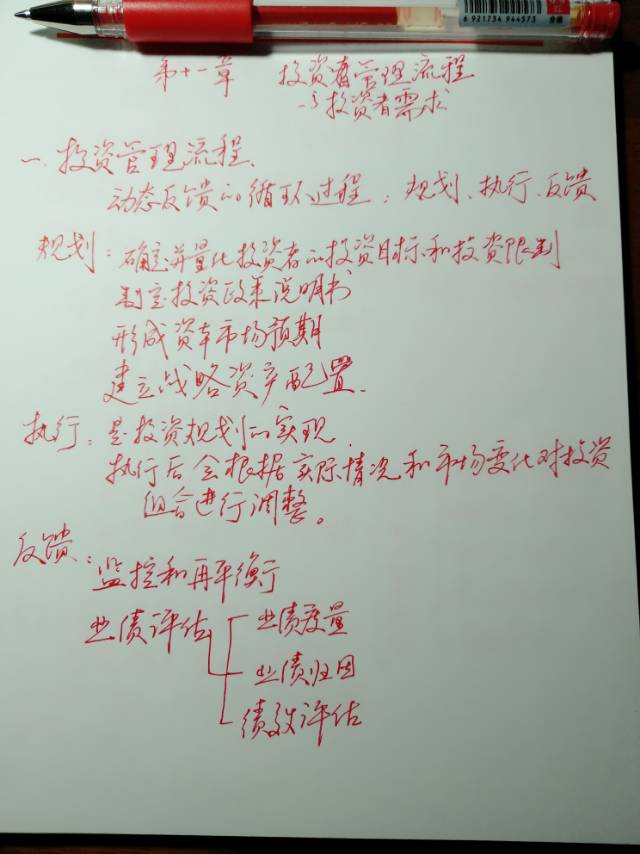 6 921734 944573
第十一章 投资管理流程
与投资者需求
一、投资管理流程、
动态反馈的循环过程：规划、执行、反馈
规划：确定并量化投资者的投资目标和投资限制
制定投资政策说明书
形成资本市场预期
建立战略资产配置.
执行：是投资规划的实现.
执行后会根据实际情况和市场变化对投资
组合进行调整。
反馈：
监控和再平衡
业绩评估
业绩度量
业绩归因
绩效评估